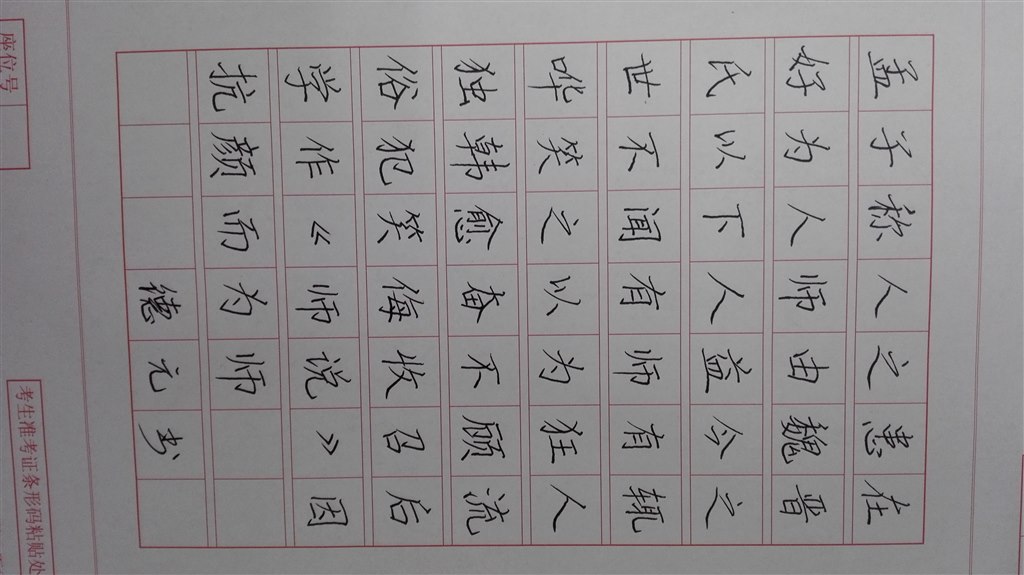 孟子称人之患在
好为人师由魏晋
氏以下人益今之
世不闻有师有辄
哗笑之以为狂人
独韩愈奋不顾流
俗犯笑侮收召后
学作《师说》因
抗颜而为师
德元书
座位号
考生准考证条形码粘贴处